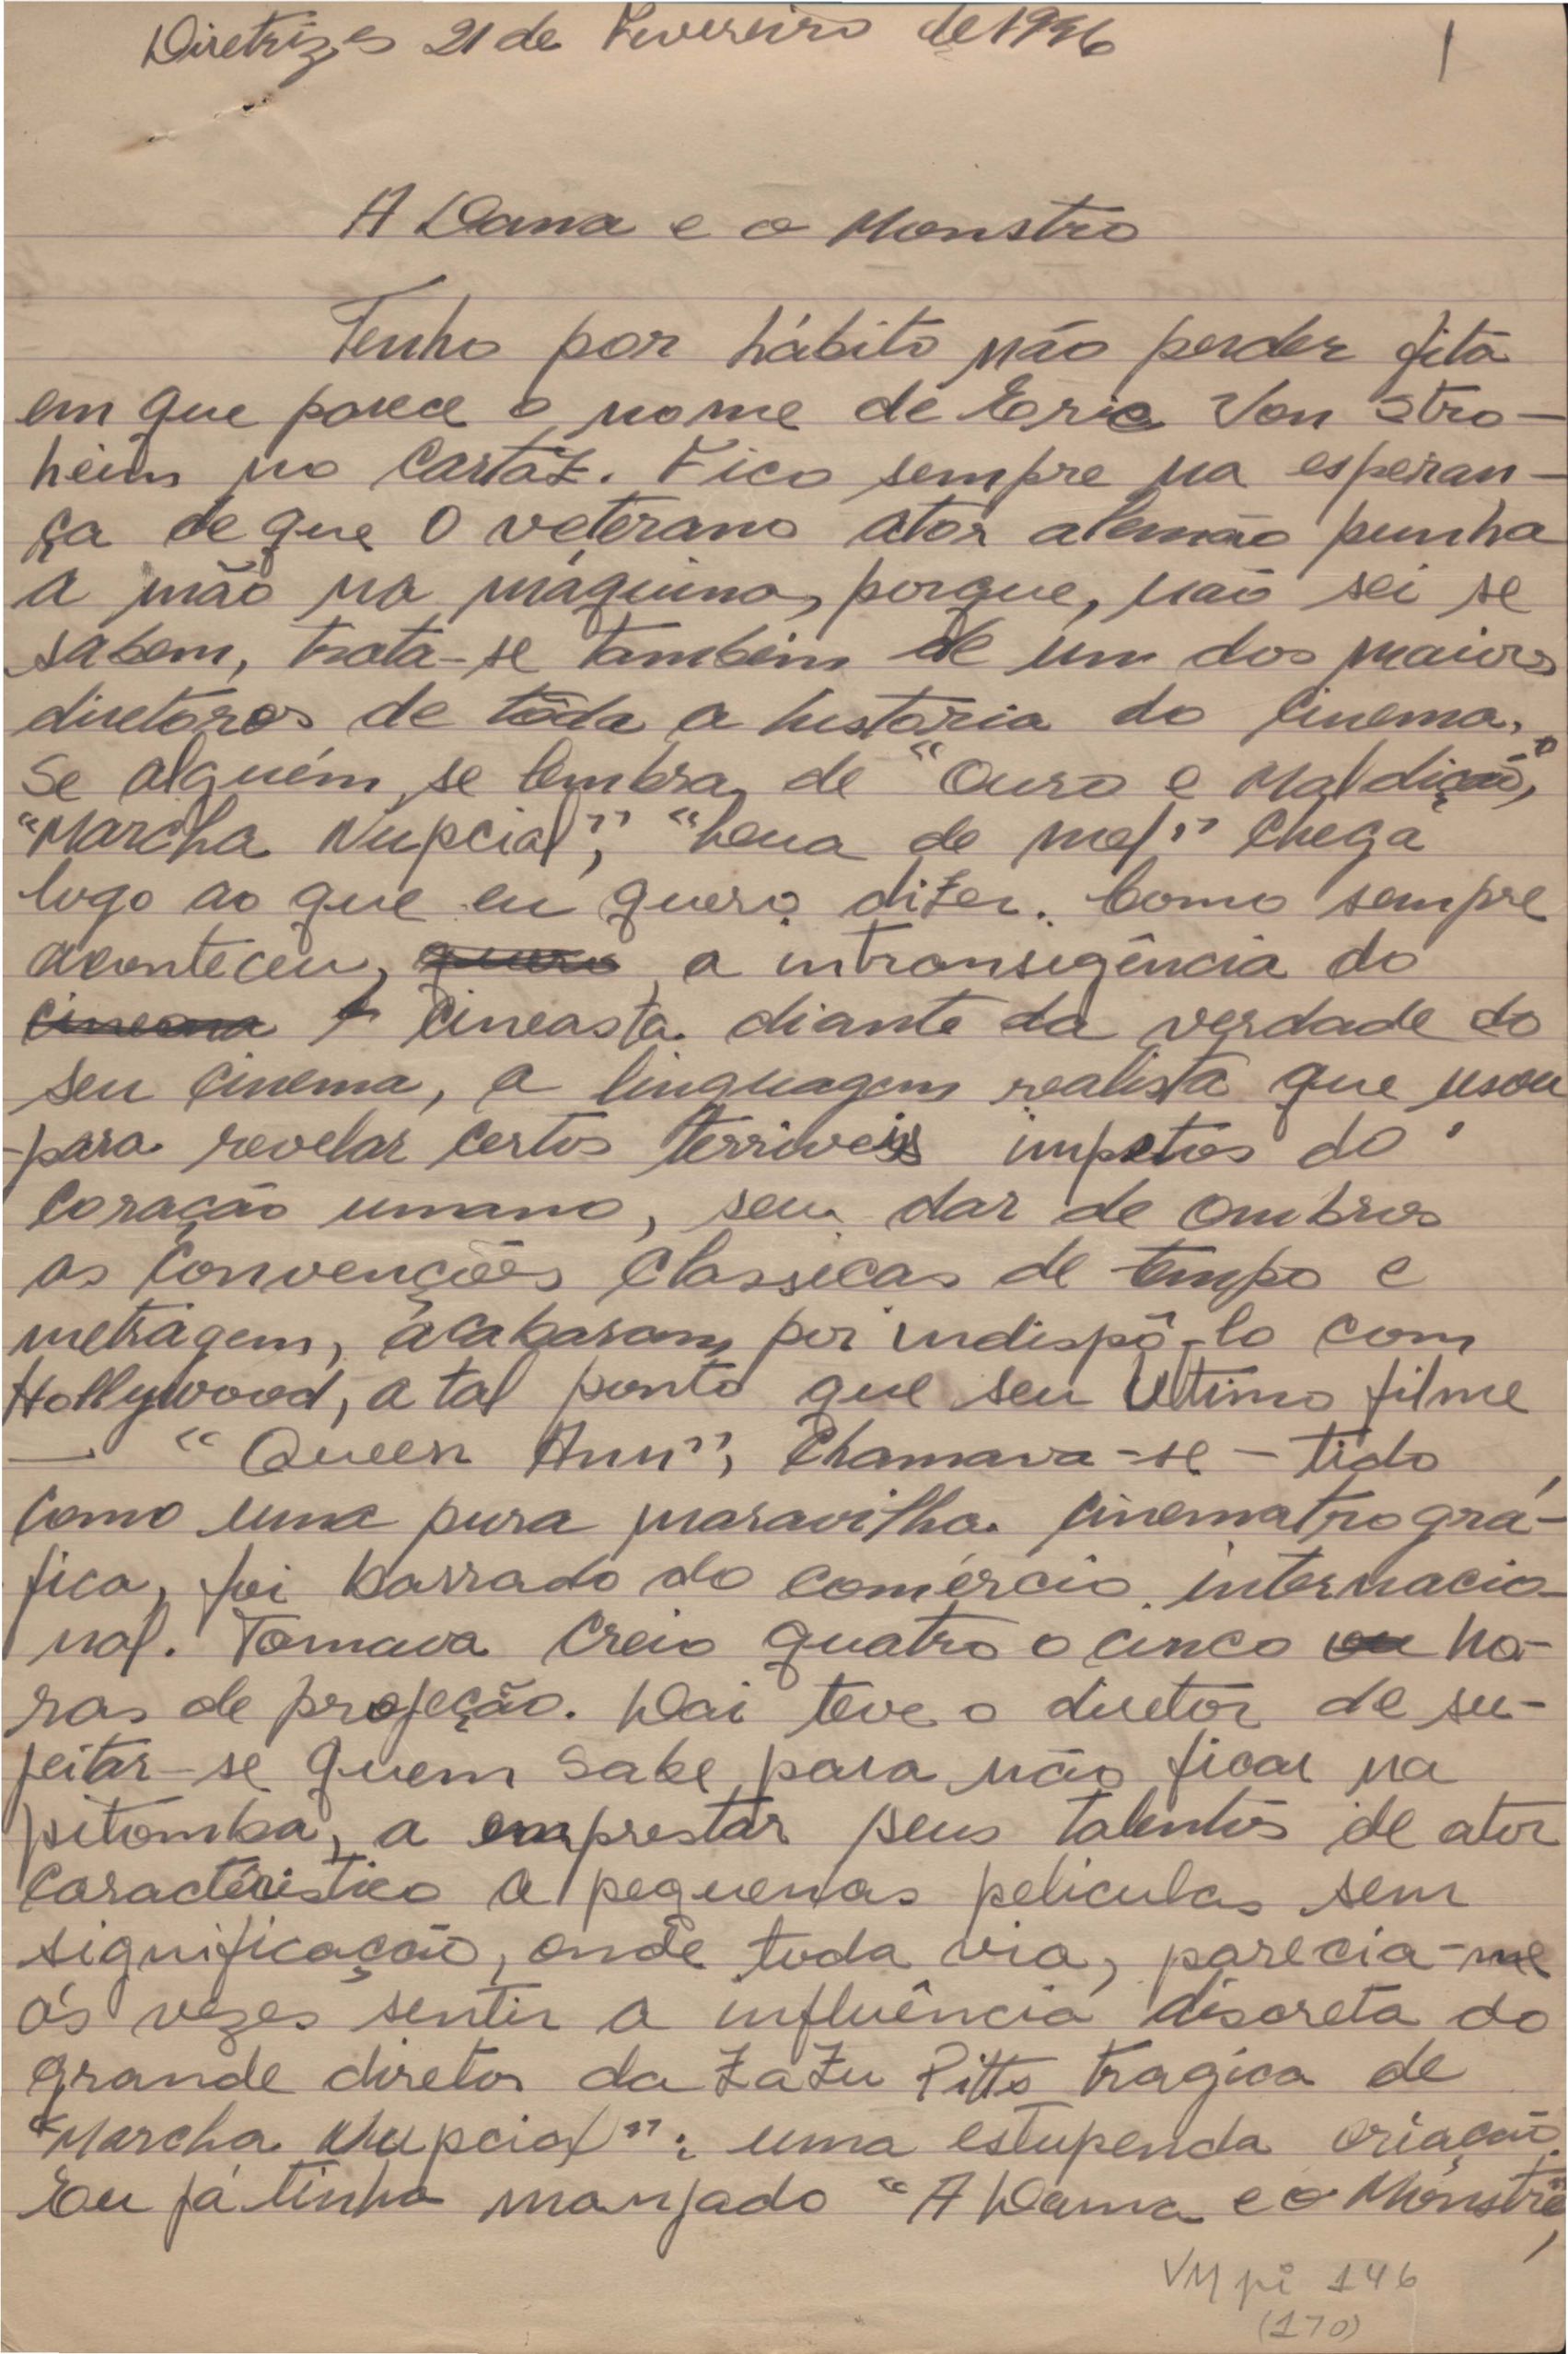 Diretrizes 21 de Fevereiro de 1946
1
A Dama e o Monstro
Tenho por hábito não perder fita
em que parece o nome de Eric Von Stro-
heim no cartaz. Fico sempre na esperan-
ça de que o veterano ator alemão punha
a mão na máquina, porque, não sei se
sabem, trata-se também de um dos maiores
diretores de tôda a historia do cinema.
Se alguém se lembra de "Ouro e Maldição",
"Marcha Nupcial", "Lua de mel" chega
logo ao que eu quero dizer. Como sempre
aconteceu, quero, a intransigência do
cinema cineasta diante da verdade do
seu cinema, a linguagem realista que usou
para revelar certos terriveis impetos do
coração umano, seu dar de ombros
as convenções classicas de tempo e
metragem, acabaram por indispô-lo com
Hollywood, a tal ponto que seu Ultimo filme
— "Queen Ann", chamava-se - tido
como uma pura maravilha cinematrográ-
fica, foi barrado do comércio internacio-
nal. Tomava creio quatro o cinco ou ho-
ras de projeção. Dai teve o diretor de su-
jeitar-se quem sabe para não ficar na
pitomba, a emprestar seus talentos de ator
caracteristico a pequenas peliculas sem
significação, onde toda via, parecia-me
ás vezes sentir a influência discreta do
grande diretor da ZaZu Pitts tragica de
"Marcha Nupcial": uma estupenda criação.
Eu já tinha manjado "A Dama e o Monstro",
VM pi 146
(170)